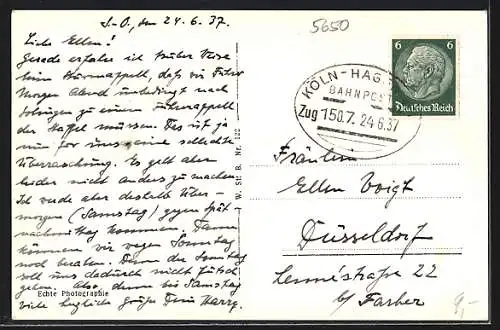 S.-O., den 24.6.37.
Liebe Ellen!
Gerade erfahre ich früher Weise
beim Sturmappell, daß wir Führer
Morgen Abend unbedingt nach
zu einem Führerappell
der Staffel müssen. Das ist ja
nun für uns eine schlechte
Überraschung. Es geht aber
leider nicht anders zu machen.
Ich werde aber deshalb Über-
morgen (Samstag) gegen Spät-
nachmittag kommen. Dann
können wir wegen Sonntag
noch beraten. Denn der Sonntag
soll uns dadurch nicht futsch
gehen. Also, denn bis Samstag
viele herzliche Grüße Dein Harry.
Echte Photographie
W. St. B. Nr. 122
5650
KÖLN-HAG
BAHNPOST
Zug 150.7. 24.6.37
6 6
Deutsches Reich
Fräulein
Ellen Voigt
Düsseldorf
Lennéstraße 22
b/ Farber
9,-